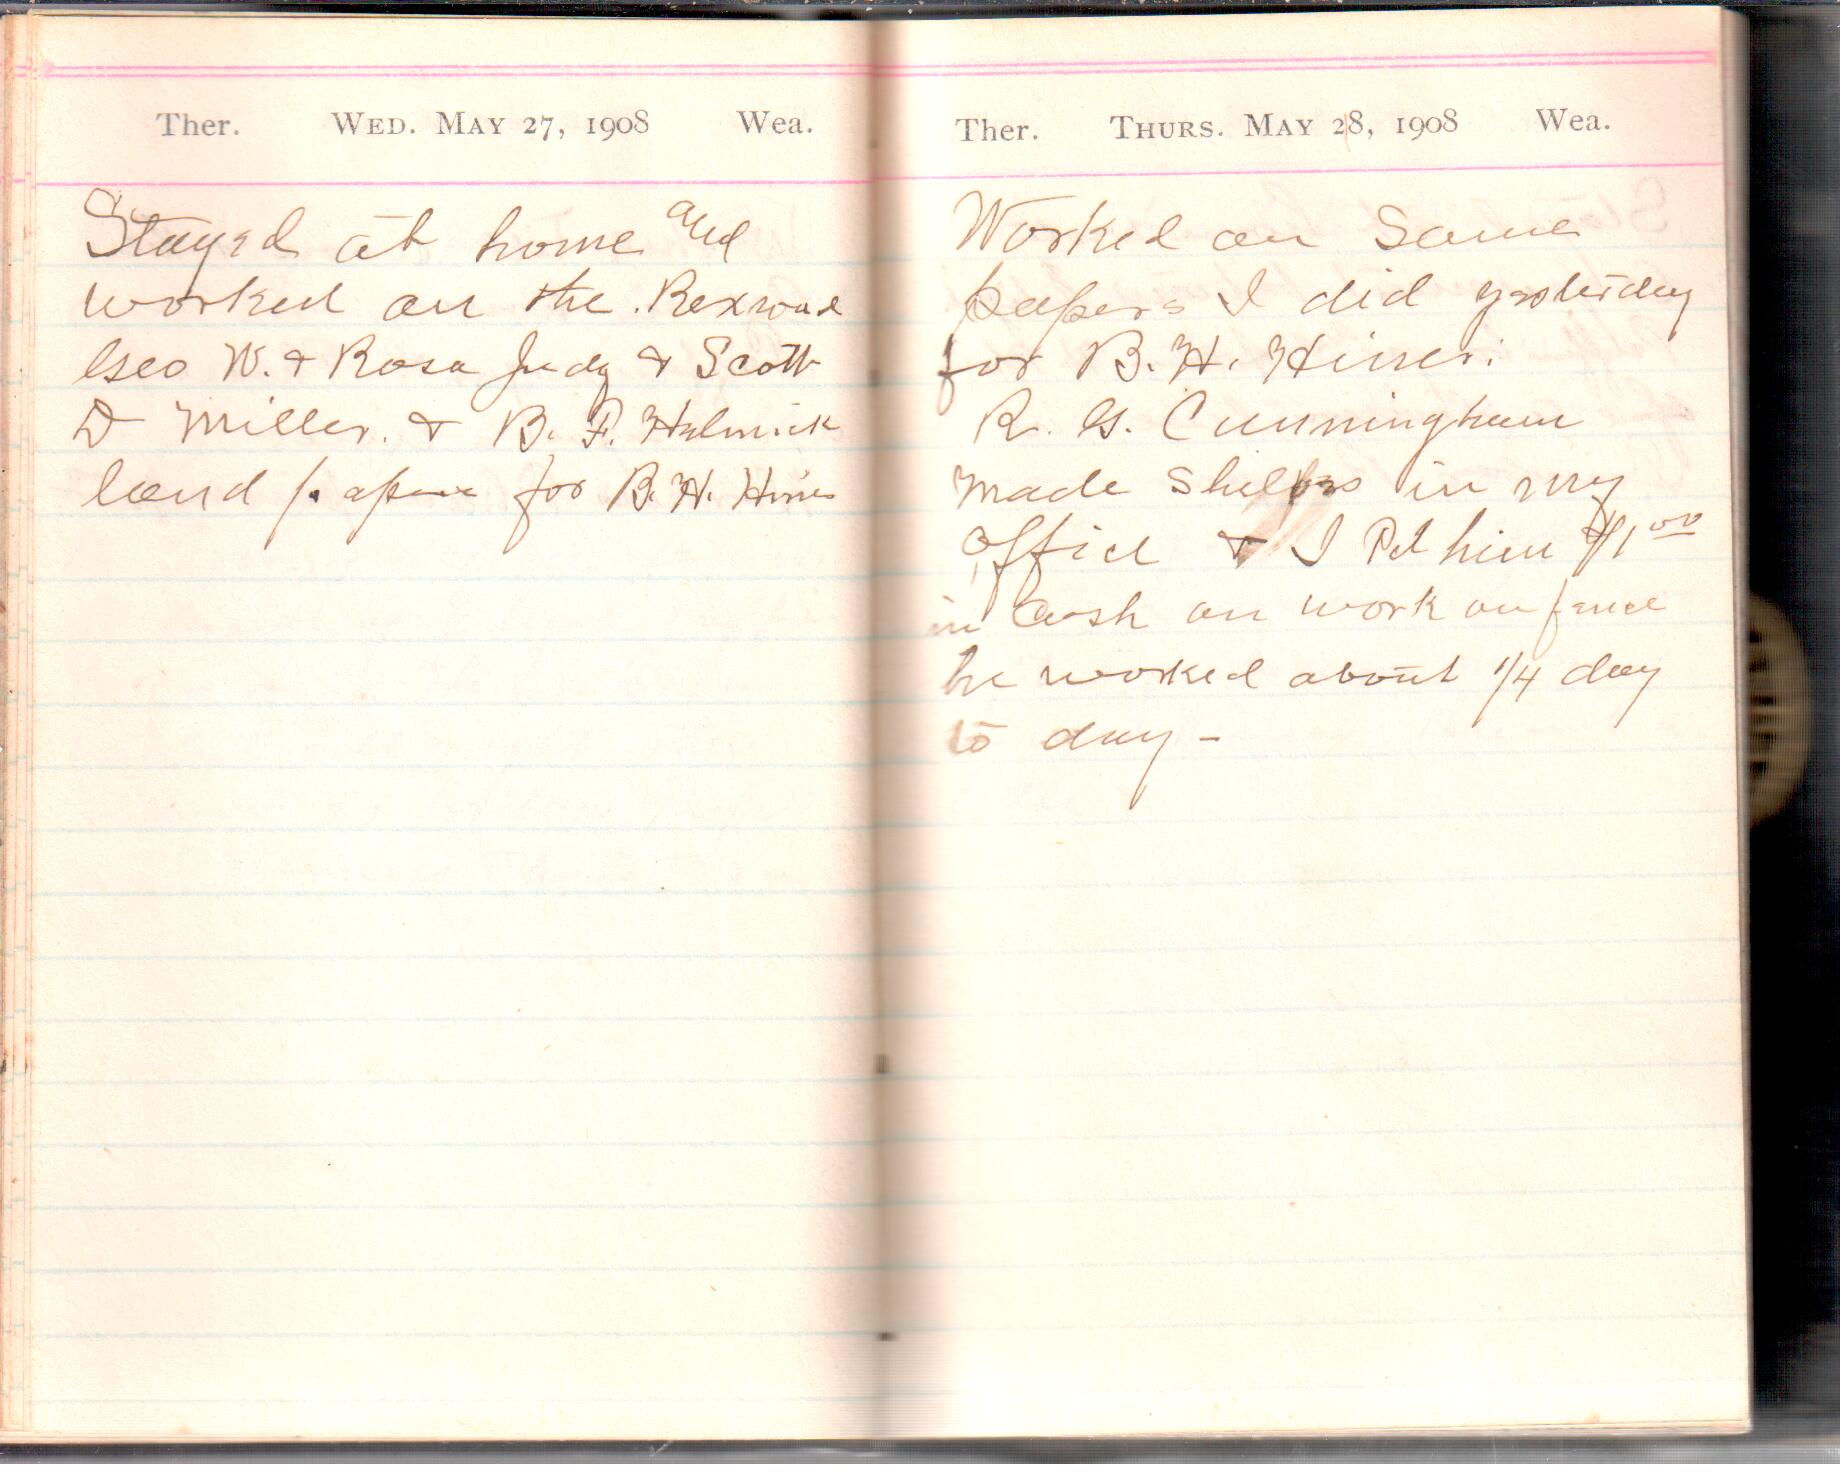 Ther. WED. MAY 27, 1908 Wea.
Stayed at home and
worked on the Rexroad
Geo W. & Rosa Judy & Scott
D Miller. & B. F. Helmick
land papers for B. H. Hiner
Ther. THURS. MAY 28, 1908 Wea.
Worked on Same
papers I did yesterday
for B. H. Hiner.
R. G. Cunningham
made shelves in my
office & I Pd him $1 00
in Cash on work on fence
he worked about 1/4 day
to day -